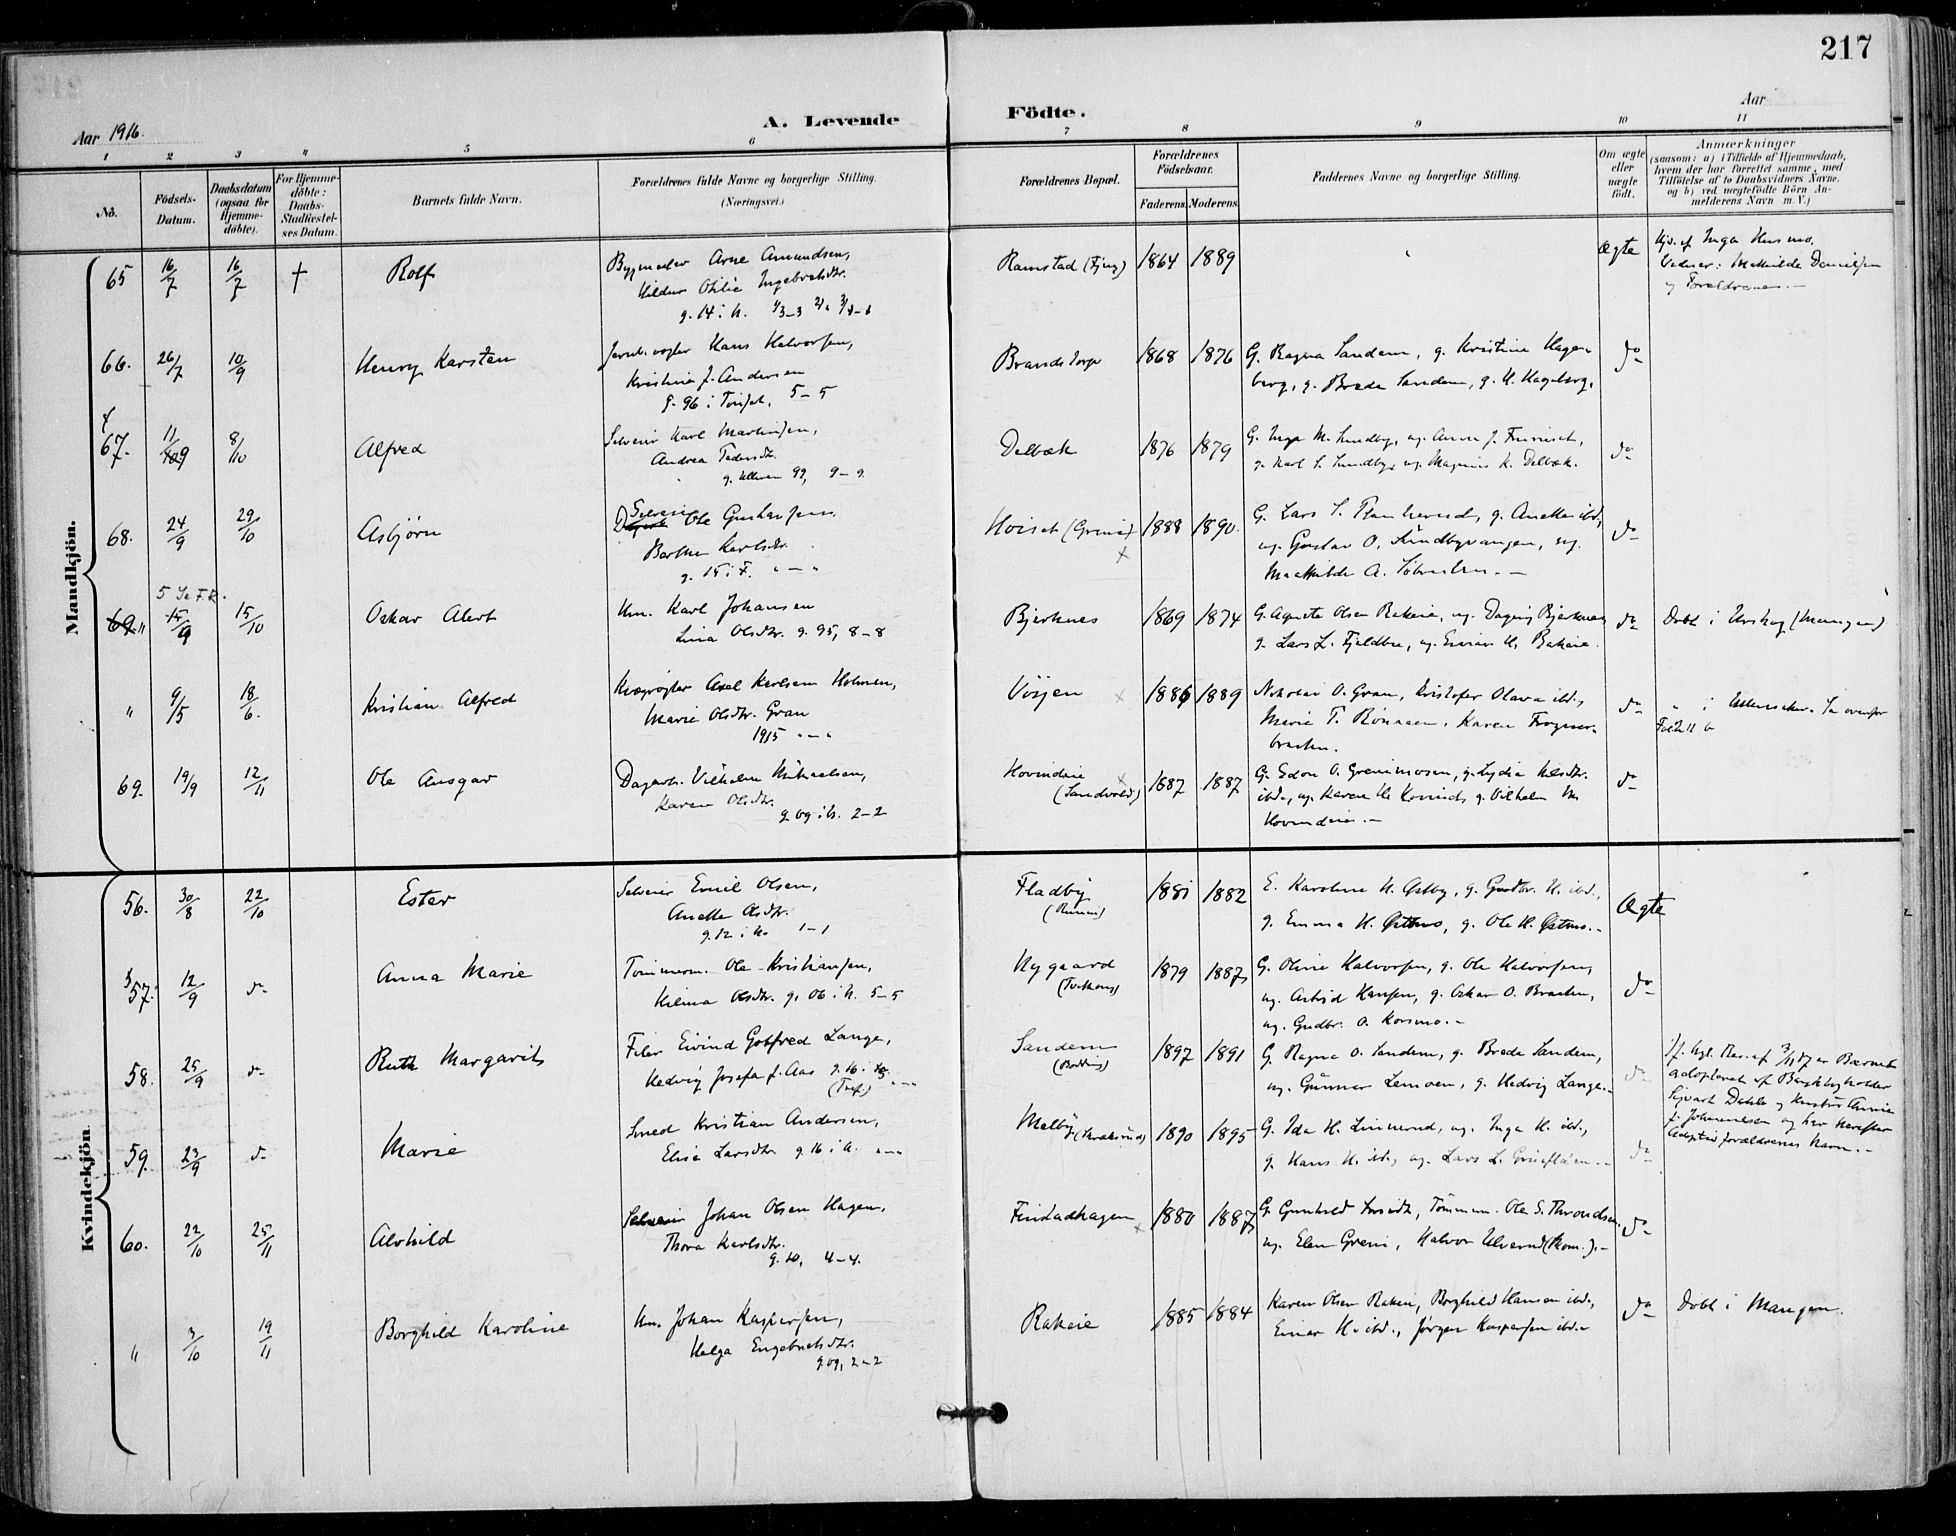 217
Aar 1916.
A. Levende Födte.
Aar
1 2 3 4 5 6 7 8 9 10 11
No.
Födsels-Datum.
Daabsdatum (ogsaa for Hjemme-döbte).
For Hjemme-döbte: Daabs-Stadfæstel-ses Datum.
Barnets fulde Navn.
Forældrenes fulde Navne og borgerlige Stilling.
(Næringsvei.)
Forældrenes Bopæl.
Forældrenes Födselsaar.
Faderens. Moderens.
Faddernes Navne og borgerlige Stilling.
Om ægte eller uægte födt.
Anmærkninger
(saasom: a) i Tilfælde af Hjemmedaab,
hvem der har forrettet samme, med
Tilföielse af to Daabsvidners Navne.
og b) ved uægtefödte Börn An-
melderens Navn m. V.)
Mandkjön.
65 16/7 16/7 † Rolf
Arne Amundsen,
Hildur Otilie Ingebretsdtr.
g. 14 i h.
Ramstad 1864 1889 Ægte
Hjd. af Inga Husmo.
Vidner: Mathilde Danielsen
og Forældrene.
66. 26/7 10/9 Henry Karsten
Hans Halvorsen,
Kristine f. Andersen
g. 96 i 5-5
Brandstorp 1868 1876
G. Ragna Sandem, g. Kristine Hagen-
berg, g. Brede Sandem, g. H. Hageberg. do
67. 11/9 8/10 Alfred
Selveier Karl Martinsen,
Andrea
g. Ullern 99, 9-9
Delbæk 1876 1879
G. Inga M. Lundby, ug. Anna J.
g. Karl S. Lundby, ug. Magnus K. Delbæk. do
68. 24/9 29/10 Asbjörn
Selveier Ole Gustavsen
Barthe Karlsdtr.
g. 15 i F. " - "
Hoiset (Greni) × 1888 1890.
G. Lars S. g. Anette ibd,
ug. Gustav O. Sundbyvangen, ug.
Mathilde A. do
5 Se F.R.
69 " 15/9 15/10 Oskar Alert
Hm. Karl Johansen
Lina Olsdtr. g. 95, 8-8
Bjerknes 1869 1874
G. Agnete Olsen Rakeie, ug. Dagny Bjerknes
g. Lars L. Fjeldbu, ug. Einar H. Rakeie. do
Döbt i Urskog (Mangen)
" 9/5 18/6. Kristian Alfred
Axel Karlsen Holmen,
Marie Olsdtr. Gran
1915 " - "
× 1886 1889
O. Gran, Kristofer Olava ibd,
Marie T. Rönaasen, Karen Frogner-
braaten. do
" i Ullensaker. Se ovenfor
69. 19/9 12/11 Ole Ansgar
Dagarb. Vilhelm Mikaelsen,
Karen Olsdtr.
g. 09 i h. 2-2
Hovindeie × (Sandvold) 1887 1887
G. Edon O. Grenimosen, g. Lydia
ibd., ug. Karen H. g. Vilhelm M.
Hovindeie. do
Kvindekjön.
56. 30/8 22/10 Ester
Selveier Emil Olsen,
Anette Olsdtr.
g. 12 i h. 1-1
Fladby 1881 1882
E. Karoline H. Østby, g. Gudbr. H. ibd.,
g. Emma H. g. Ole H. Ægte
57. 12/9 do Anna Marie
Tömmerm. Ole Kristiansen,
Hilma Olsdtr. g. 06 i h. 5-5
Nygaard 1879 1887
G. Oline Halvorsen, g. Ole Halvorsen,
ug. Astrid Hansen, g. Oskar O. Braaten,
ug. Gudbr. O. Korsmo. do
58. 25/9 do Ruth Margarith
Filer Eivind Gotfred Lange,
Hedvig Josefa f. Aas g. 16 i
Sandem 1897 1891
G. Ragna O. Sandem, g. Brede Sandem,
ug. Gunnar Lemoen, g. Hedvig Lange. do
Jf. kgl. Res. af 3/11 17 er Barnet
adopteret af
Sigvart Dahle og Hustru Annie
f. Johannesen og bær herefter
Adoptivforældrenes Navn.
59. 23/9 do Marie
Smed Kristian Andersen,
Elise Larsdtr g. 16 i h. " - "
Melby 1890 1895
G. Ida H. Linnerud, ug. Inga H. ibd.,
g. Hans H. ibd, ug. Lars L. do
60. 22/10 25/11 Alvhild
Selveier Johan Olsen Hagen,
Thora Karlsdtr.
g. 10, 4-4.
Finstadhagen × 1880 1887
G. Gunhild Tömmerm. Ole S. Throndsen
ug. Elen Greni, Halvor Ulverud (Rom.). do
" 3/10 19/11 Borghild Karoline
Hm. Johan Kaspersen,
Helga Engebretsdtr.
g. 09, 2-2
Rakeie 1885 1884
Karen Olsen Rakeie, Borghild Hansen ibd.,
Einar H. ibd., Jörgen Kaspersen ibd. do
Döbt i Mangen.